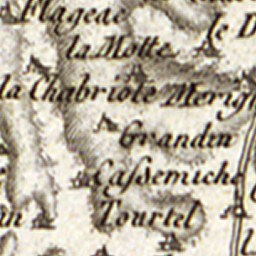 Flageac
le D
la Motte
la Chabriole Merig
Grandin
Casdemiche
Tourtel